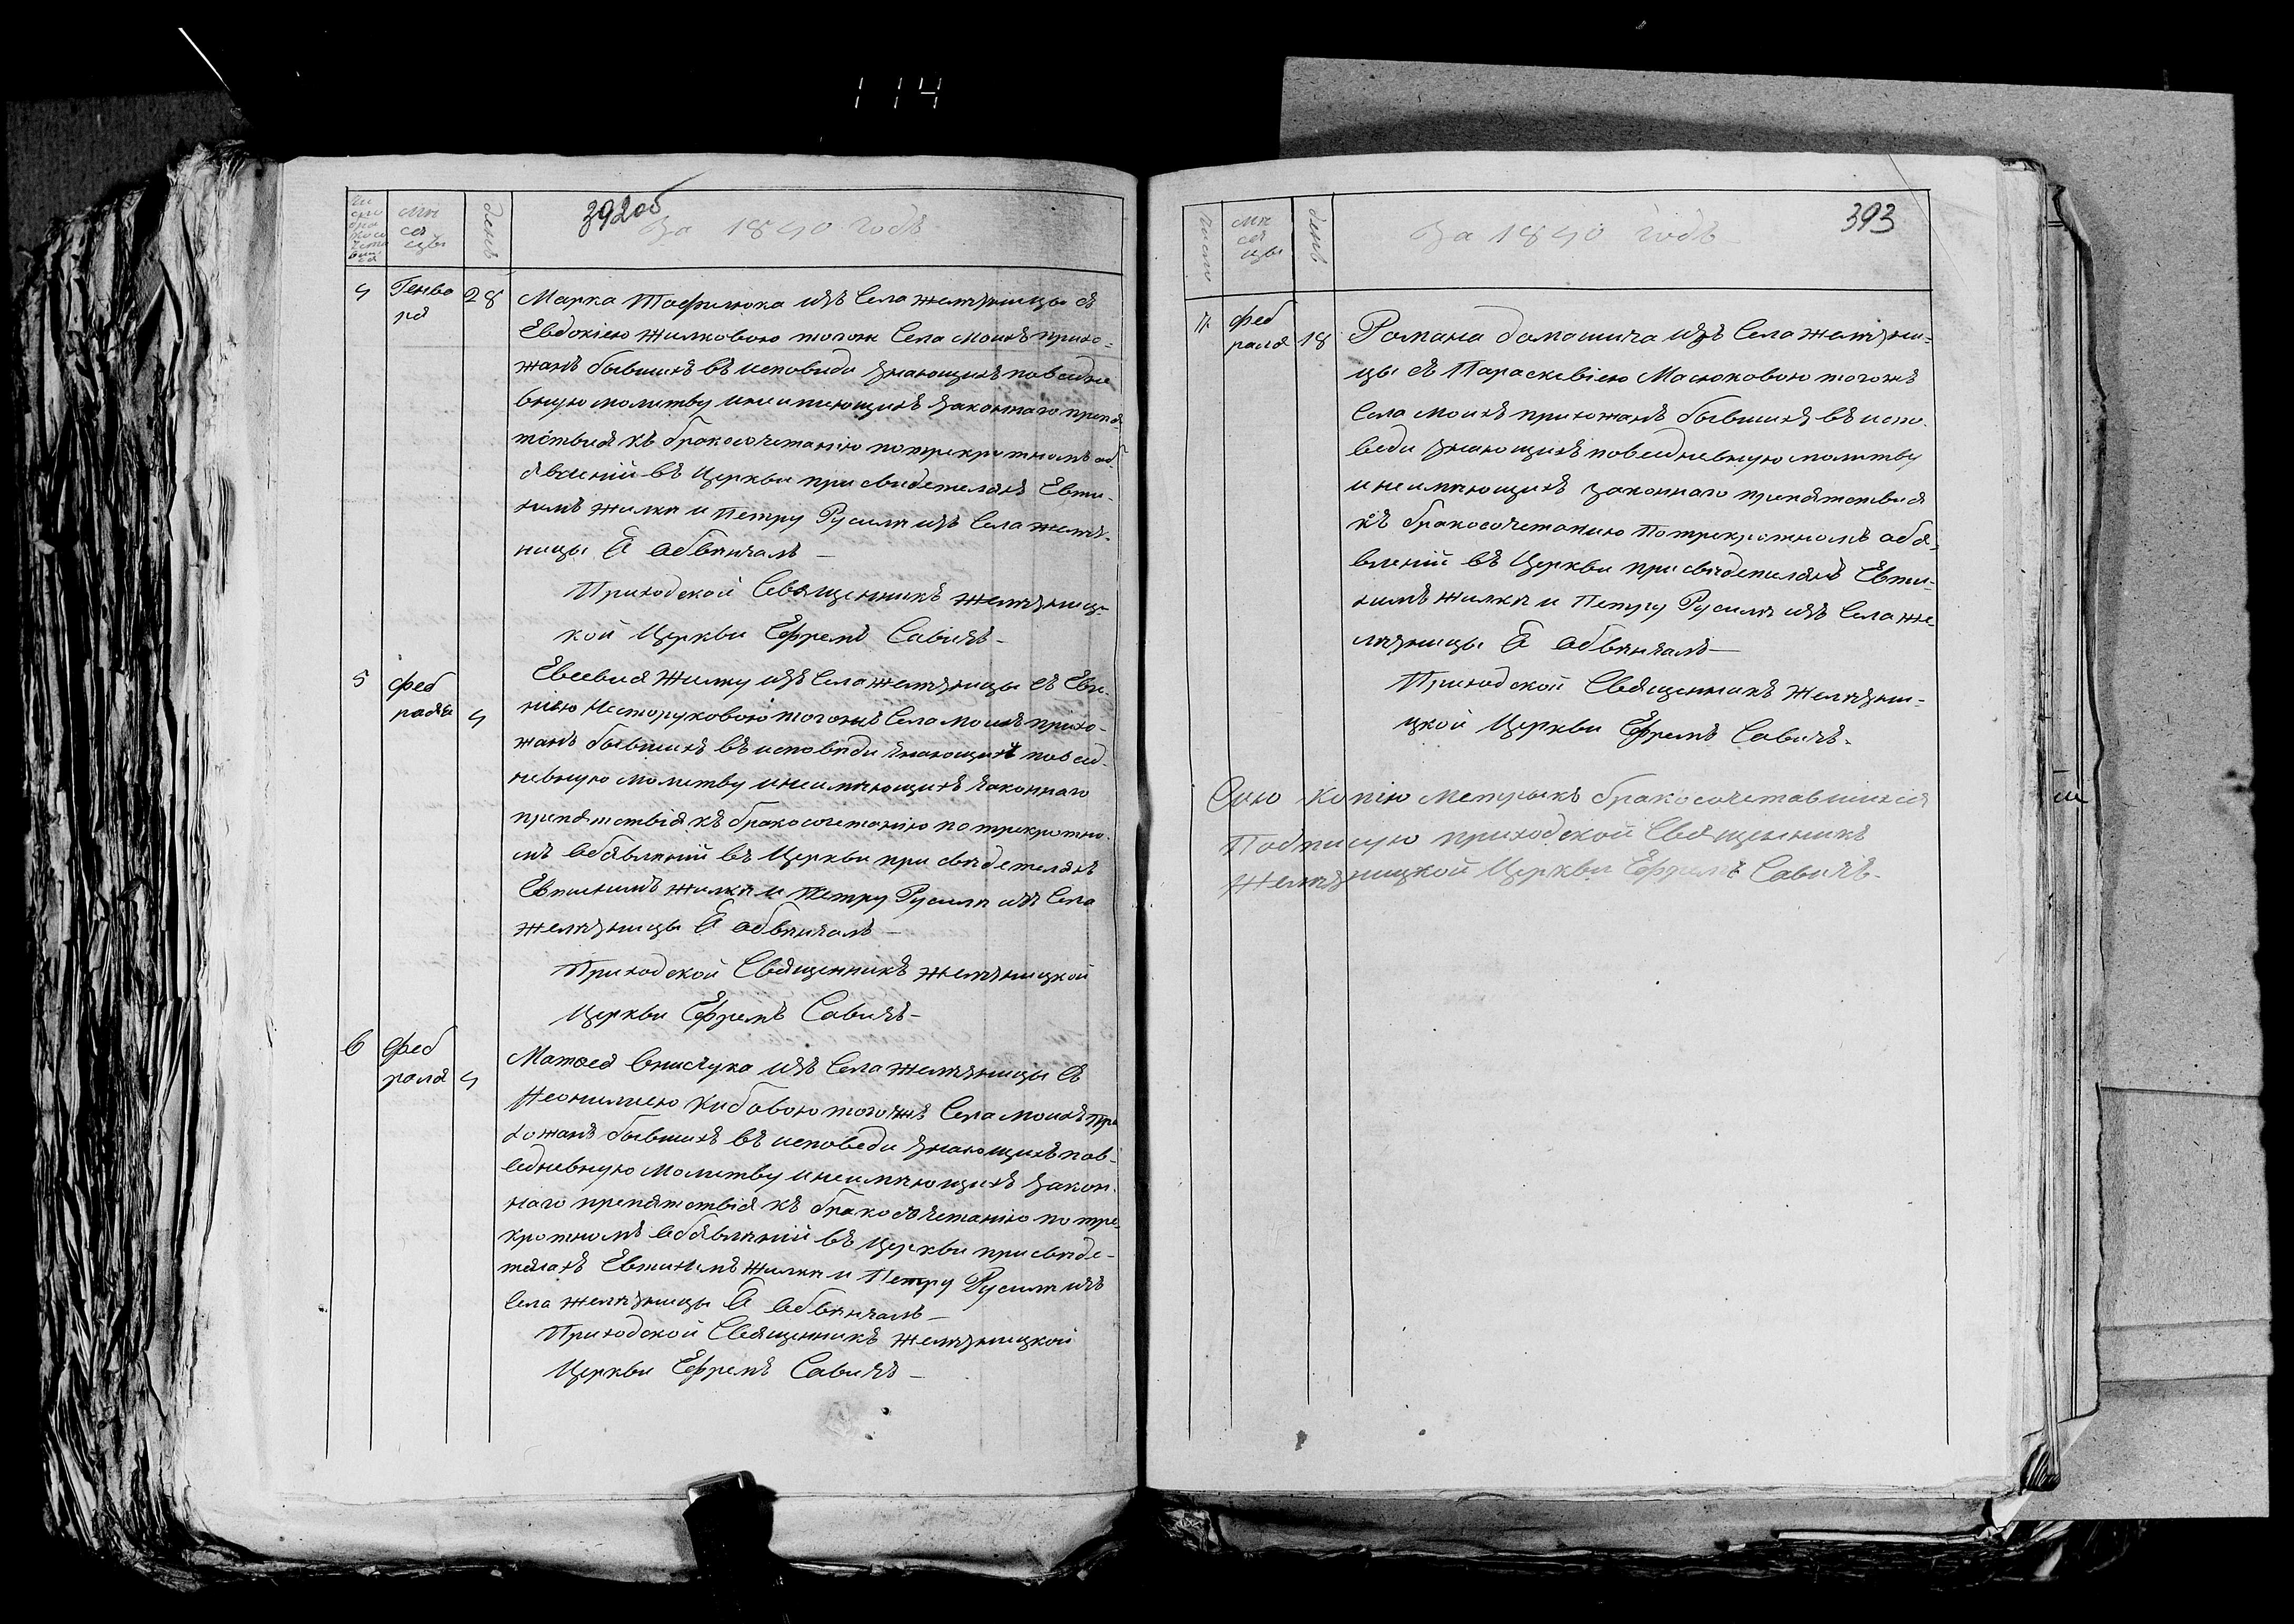 114
392об
За 1840 годъ
Мѣ
ся
цы
день
4 Генва
ря 28 Марка Тофилюка изъ Села Желѣзницы съ
Евдокіею Жилковою тогожъ Села моихъ прихо-
жанъ бывшихъ въ исповѣди знающихъ повседне
вную молитву и неимѣющихъ законнаго препя
тствія къ бракосочетанію потрекратномъ об
явленій въ Церкви при свидетеляхъ Евти-
химъ Жилки и Петру Русили изъ Села Желѣз-
ницы Я обвѣнчалъ —
Приходской Священникъ Желѣзниц-
кой Церкви Ефремъ Савичъ —
5 Фев
раля 4 Евсевия Жилку изъ Села Желѣзницы съ Евг-
ніею Несторуковою тогожъ Села моихъ прихо-
жанъ бывшихъ въ исповѣди знающихъ повсед-
невную молитву и неимѣющихъ законнаго
препятствія къ бракосочетанію потрекратно-
мъ обявленій въ Церкви при свидетеляхъ
Евтихимъ Жилки и Петру Русили изъ Села
Желѣзницы Я обвѣнчалъ —
Приходской Священникъ Желѣзницкой
Церкви Ефремъ Савичъ —
6 Фев
раля 4 Матвея Внисчука изъ Села Желѣзницы съ
Неонилиею Кибовою тогожъ Села моихъ при
хожанъ бывшихъ въ исповеди знающихъ пов-
седневную молитву и неимѣющихъ закон-
наго препятствія къ бракосочетанію по тре-
кратномъ обявленій въ Церкви при свиде-
теляхъ Евтихимъ Жилки и Петру Русили изъ
Села Желѣзницы Я обвѣнчалъ —
Приходской Священникъ Желѣзницкой
Церкви Ефремъ Савичъ —
393
За 1840 годъ
Число
Мѣ
ся
цы
день
7 Фев
раля 18 Романа Домашича изъ Села Желѣзни-
цы съ Параскевіею Масюковою тогожъ
Села моихъ прихожанъ бывшихъ въ испо-
веди знающихъ повседневную молитву
и неимѣющихъ законнаго препятствия
къ бракосочетанию потрекратномъ обя-
вленій въ Церкви при свидетеляхъ Евти-
химъ Жилки и Петру Русили изъ Села Же-
лѣзницы Я обвѣнчалъ —
Приходской Священникъ Желѣзни-
цкой Церкви Ефремъ Савичъ —
Сию копію метрыкъ бракосочетавшихся
Подписую приходской Священникъ
Желѣзницкой Церкви Ефремъ Савичъ —